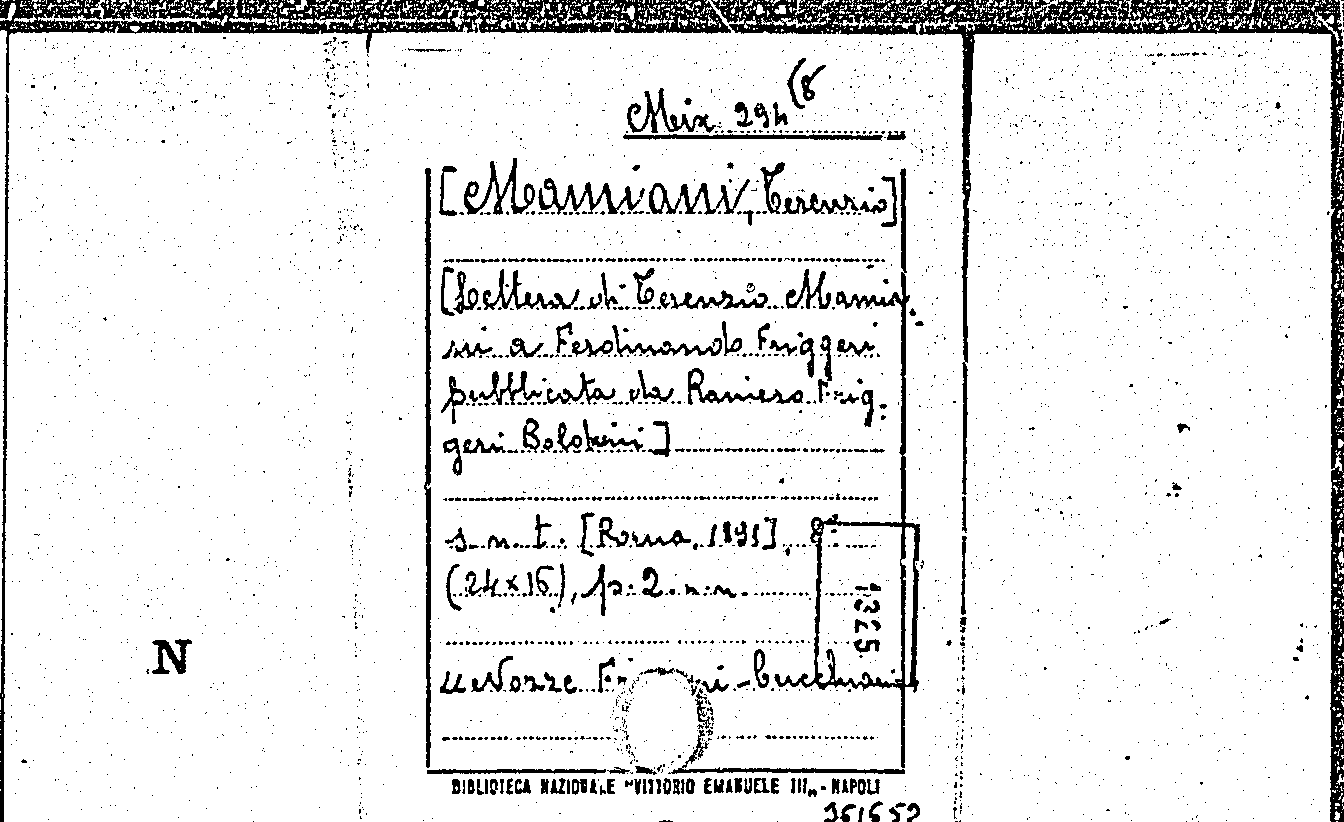 Mix. 294 (8
[Mamiani, Terenzio]
[Lettera di Terenzio Mamia-
ni a Ferdinando Friggeri
pubblicata da Raniero Frig-
geri
s. n. t. [Roma, 1891], 8°
(24x16), p. 2. n. n.
1325
N
"Nozze
BIBLIOTECA NAZIONALE "VITTORIO EMANUELE III„ - NAPOLI
361652